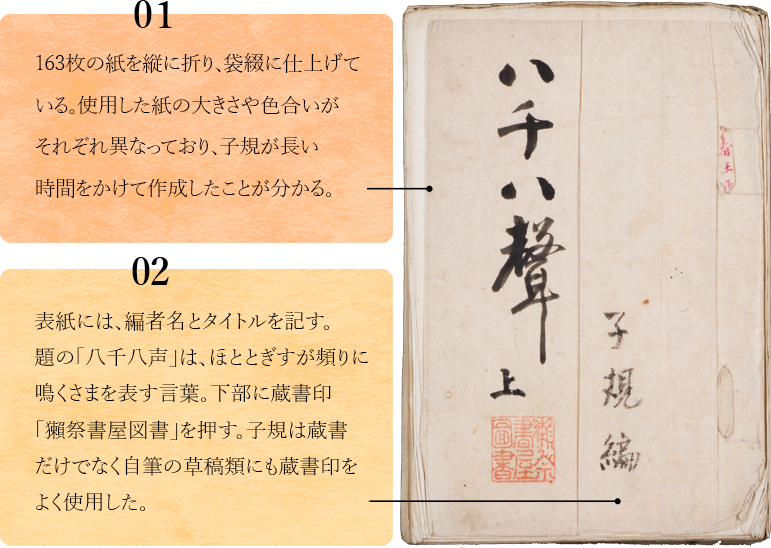 01
163枚の紙を縦に折り、袋綴に仕上げて
いる。使用した紙の大きさや色合いが
それぞれ異なっており、子規が長い
時間をかけて作成したことが分かる。
02
表紙には、編者名とタイトルを記す。
題の「八千八声」は、ほととぎすが頻りに
鳴くさまを表す言葉。下部に蔵書印
「獺祭書屋図書」を押す。子規は蔵書
だけでなく自筆の草稿類にも蔵書印を
よく使用した。
八千八聲
上
子規編
獺祭
書屋
圖書